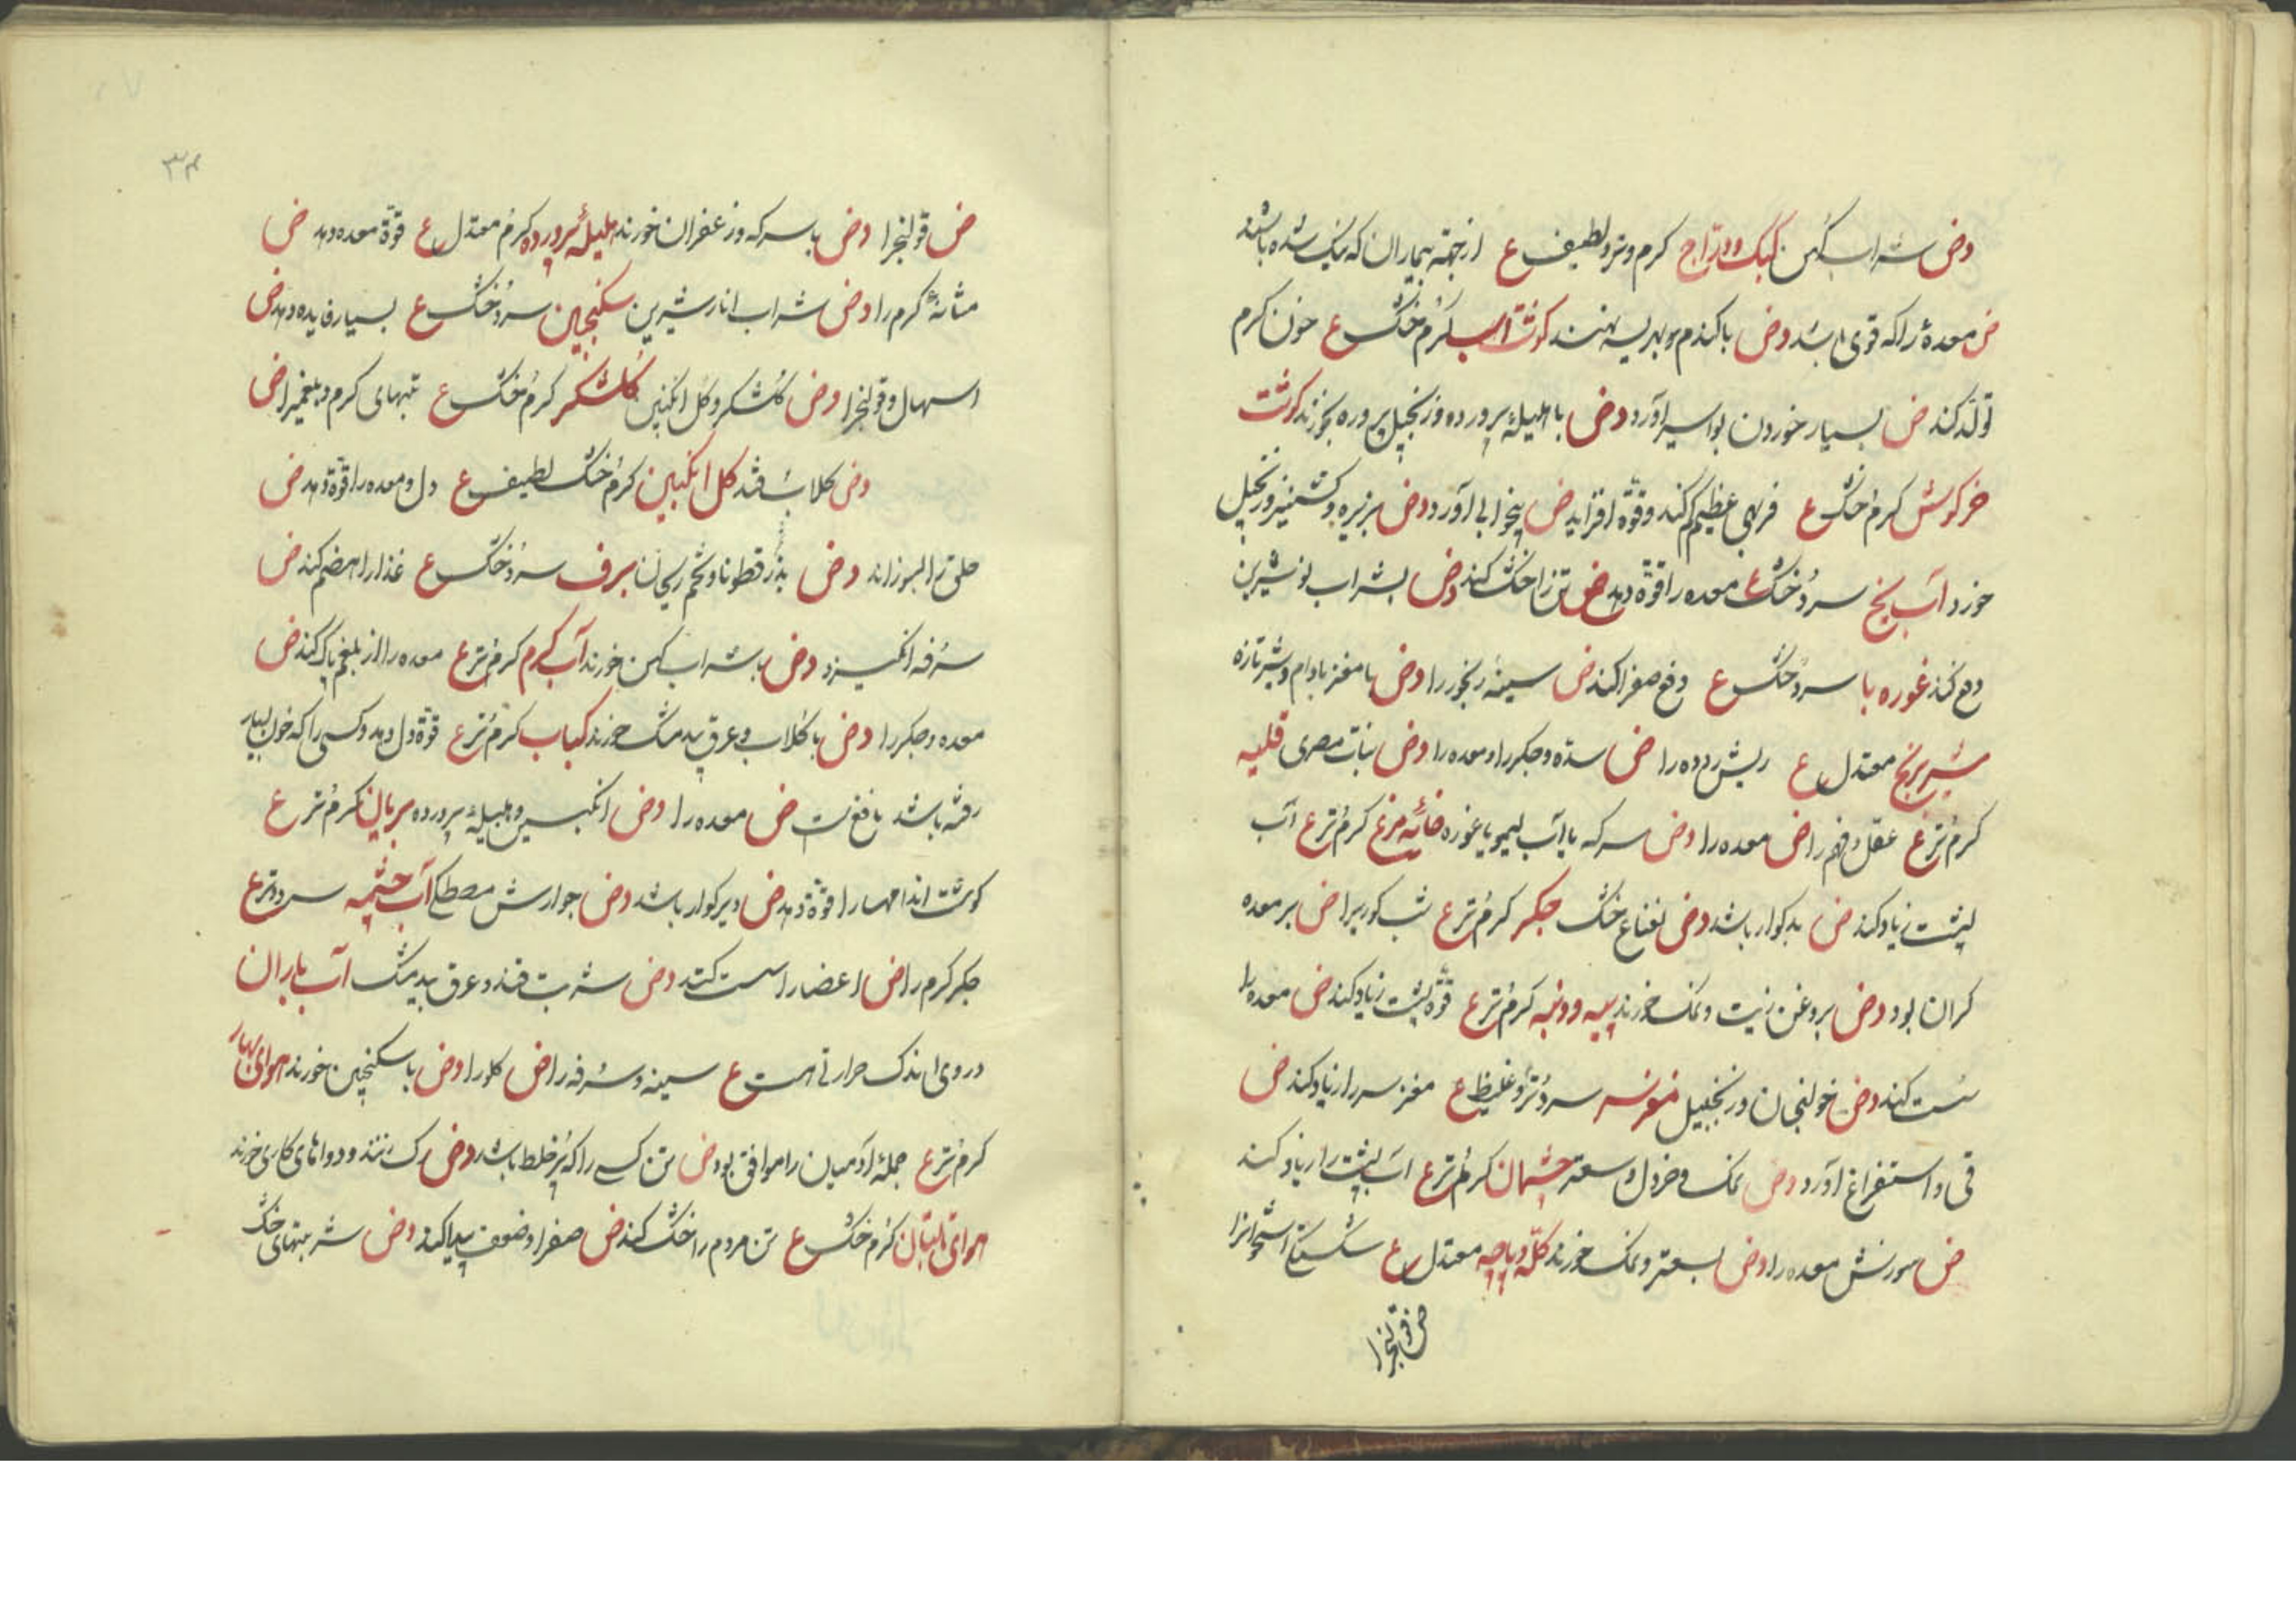 وض شراب کهن کبک و دراج کرم و تر و لطیف ع از جهة بیماران که نیک شده باشند
ض معدهٔ را که قوی باشد وض با کندم و بهریسه پزند کوشت اسب کرم خشک ع خون کرم
تولد کند ض بسیار خوردن بواسیر آورد وض با هلیلهٔ پرورده و زنجبیل پروره بخورند کوشت
خرکوش کرم خشک ع فربهی عظیم کند و قوة افزاید ض بیخوابی آورد وض بزیره و کشنیز و زنجبیل
خورد آب یخ سرد خشک ع معده را قوة دهد ض تن را خشک کند وض بشراب لوز شیرین
دفع کند غوره با سرد خشک ع دفع صفرا کند ض سینهٔ رنجور را وض با مغز بادام و شیر تازه
شیر برنج معتدل ع ریش روده را ض سده و جکر را و معده را وض نبات مصری قلیه
کرم تر ع عقل و فهم را ض معده را وض سرکه یا آب لیمو یا غوره خائه مرغ کرم تر ع آب
پشت زیاد کند ض بد کوار باشد وض نعناع خشک جکر کرم تر ع شب کوریرا ض بر معده
کران بود وض بروغن زیت و نمک خورند پیه و دنبه کرم تر ع قوة پشت زیاد کند ض معده را
سست کند وض خولنجان و زنجبیل مغز سر سرد تر و غلیظ ع مغز سر را زیاد کند ض
قی و استفراغ آورد وض نمک و خردل و سعتر چشمان کرم تر ع آب پشت را زیاد کند
ض سوزش معده را وض بسعتر و نمک خورند کله و پاچه معتدل ع شکستکی استخوانرا
ض قولنجرا
۳۴
ض قولنجرا وض با سرکه و زعفران خورند هلیلهٔ پرورده کرم معتدل ع قوة معده دهد ض
مثانهٔ کرم را وض شراب انار شیرین سکنجبین سرد خشک ع بسیار فایده دهد ض
اسهال و قولنجرا وض کلشکر و کل انکبین کلشکر کرم خشک ع تبهای کرم و بلغمیرا ض
وض کلاب و قند کل انکبین کرم خشک لطیف ع دل و معده را قوة دهد ض
حلق را بسوزاند وض بذر قطونا و تخم ریحان برف سرد خشک ع غذا را هضم کند ض
سرفه انکیزد وض با شراب کهن خورند آب کرم کرم تر ع معده را از بلغم پاک کند ض
معده و جکر را وض با کلاب و عرق بید مشک خورند کباب کرم تر ع قوة دل دهد و کسی را که خون بسیار
رفته باشد نافع است ض معده را وض انکبین و هلیلهٔ پرورده بریان کرم تر ع
کوشت اندامها را قوة دهد ض دیر کوار باشد وض جوارش مصطکی آب چشمه سرد و تر ع
جکر کرم را ض اعضا را سست کند وض شربت قند و عرق بید مشک آب باران
در وی اندک حرارتی است ع سینه و سرفه را ض کلو را وض با سکنجبین خورند هوای بهار
کرم تر ع جملهٔ آدمیان را موافق بود ض تن کسی را که پر خلط باشد وض رک زنند و دواهای کاری خورند
هوای تابستان کرم خشک ع تن مردم را خشک کند ض صفرا و ضعف پیدا کند وض شربتهای خنک